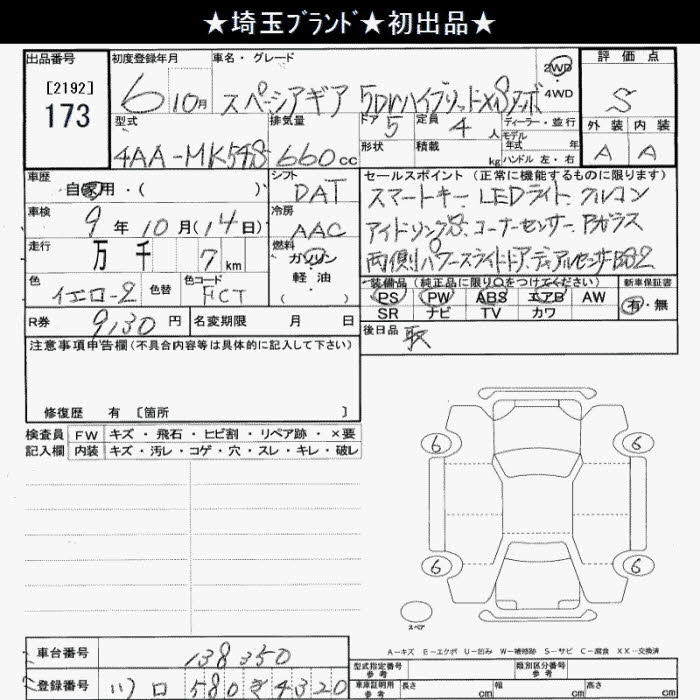 ★埼玉ﾌﾞﾗﾝﾄﾞ★初出品★
出品番号 初度登録年月 車名・グレード 評価点
[2192]
173
6 10月 スペーシアギア 5Drハイブリッドxsターボ 2WD 4WD S
型式 排気量 ドア 5 定員 4 人 ディーラー・並行 外装 内装
モデル年式 年
4AA-MK54S 660cc 形状 積載 kg ハンドル 左・右 A A
車歴 自家用・( ) シフト DAT セールスポイント(正常に機能するものに限ります)
スマートキー.LEDライト.クルコン
車検 9年10月(14日) 冷房 AAC アイドリングS.コーナーセンサー.Pガラス
走行 万 千 7 km 燃料 ガソリン 両側パワースライドドア.デュアルセンサーBS2
軽・油
( )
色 イエロー2 色替 色コード FCT 装備品(純正品に限り○をつけてください) 新車保証書
PS PW ABS エアB AW 有・無
SR ナビ TV カワ
R券 9130円 名変期限 月 日 後日品 取
注意事項申告欄(不具合内容等は具体的に記入して下さい)
修復歴 有 [箇所 ]
検査員 FW キズ・飛石・ヒビ割・リペア跡・×要
記入欄 内装 キズ・汚レ・コゲ・穴・スレ・キレ・破レ
6 6
6 6
スペア
A-キズ E-エクボ U-凹み W-補修跡 S-サビ C-腐食 XX-交換済
車台番号 138350 型式指定番号 参考 類別区分番号 参考
登録番号 川口 580 そ 4320 車庫証明用 参考 長さ cm 幅 cm 高さ cm